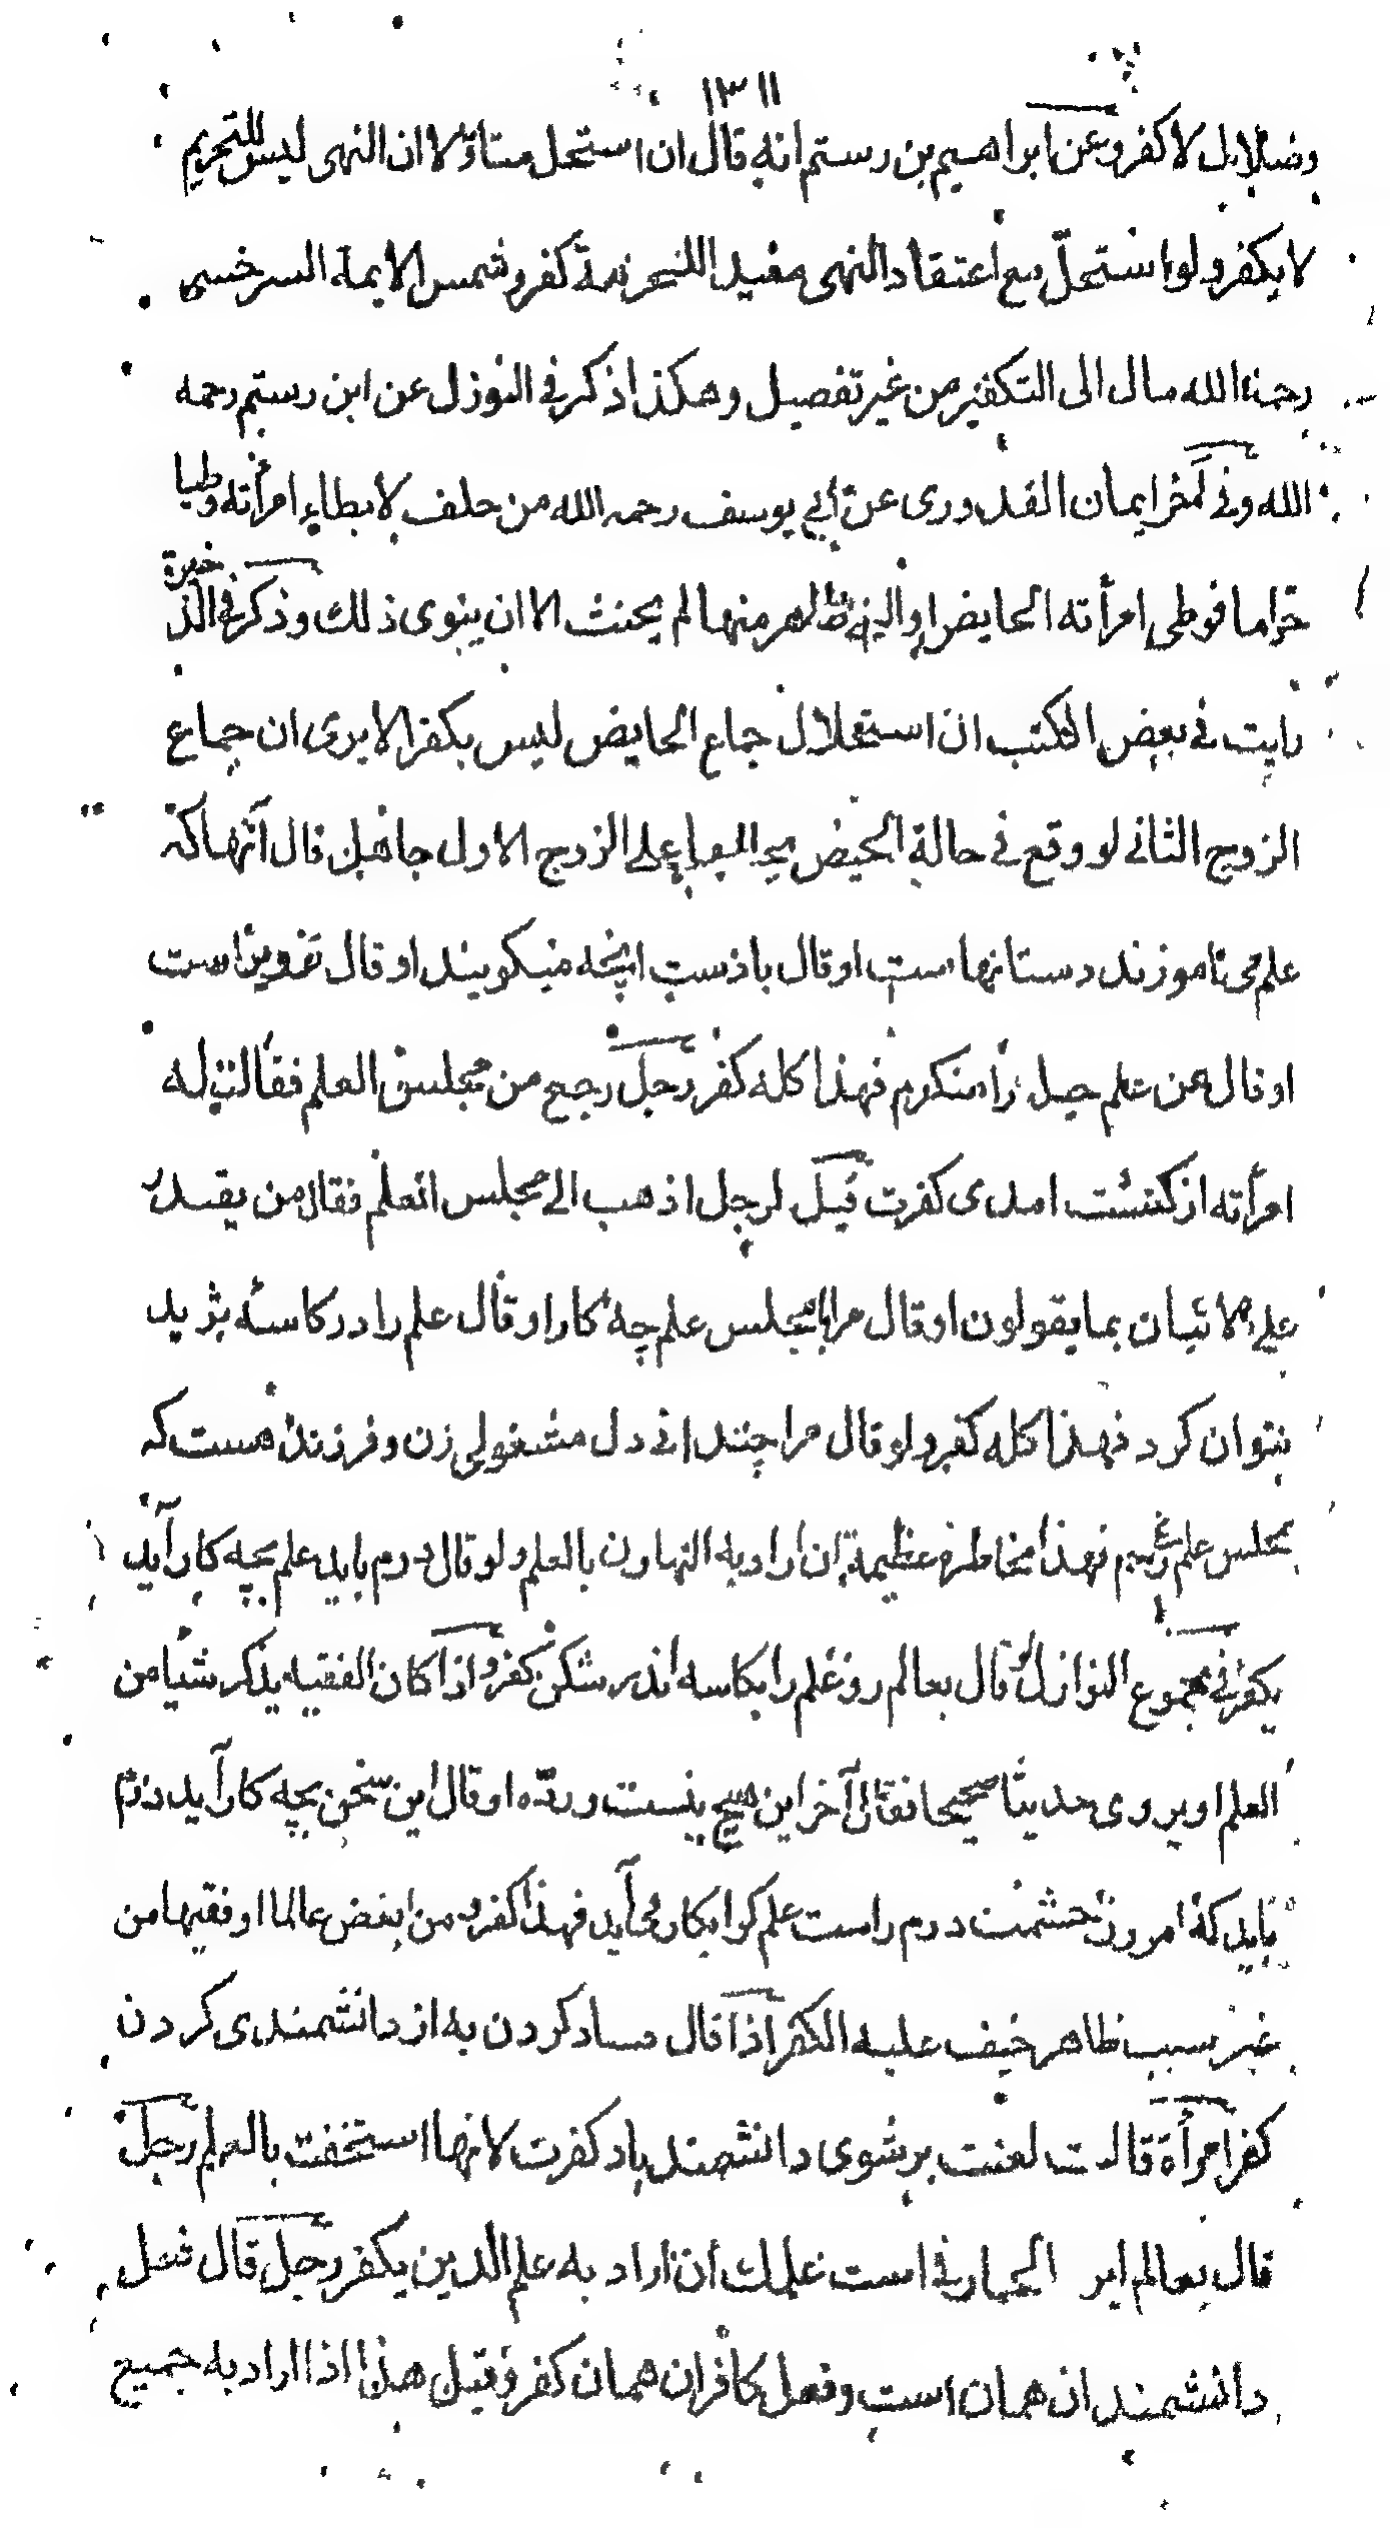 ١٣١١
وضلال لا كفر وعن ابراهيم بن رستم انه قال ان استحل متاؤلا ان النهى ليس للتحريم
لا يكفر ولو استحلّ مع اعتقاد النهى مفيد الحرمة كفر وشمس الايمة السرخسى
رحمه الله مال الى التكفير من غير تفصيل وهكذا ذكر في النوزل عن ابن رستم رحمه
الله وفي ايمان القدورى عن أبي يوسف رحمه الله من حلف لا يطاء امرأته وطيا
حراما فوطى امرأته الحايض او التي ظاهر منها لم يحنث الا ان ينوى ذلك وذكر في الذخيرة
رايت في بعض الكتب ان استحلال جماع الحايض ليس بكفر الا يرى ان جماع
الزوج الثاني لو وقع في حالة الحيض على الزوج الاول جاهل قال آنهاكه
علم مى آموزند دستانها است او قال باذست انچه ميكويند او قال تزوير است
او قال من علم حيل را منكرم فهذا كله كفر رجل رجع من مجلس العلم فقالت له
امرأته از كنشت امدى كفرت قيل لرجل اذهب الى مجلس العلم فقال من يقدر
على الاتيان بما يقولون او قال مرا بمجلس علم چه كار او قال علم را در كاسه ثريد
نتوان كرد فهذا كله كفر ولو قال مرا چندانى دل مشغولى زن و فرزند هست كه
بمجلس علم نرسم فهذا مخاطرة عظيمة ان اراد به التهاون بالعلم ولو قال درم بايد علم بچه كار آيد
يكفر في مجموع النوازل لو قال بعالم رو علم را بكاسه اندر شكن كفر واذا كان الفقيه يذكر شيأ من
العلم او يروى حديثا صحيحا فقال آخر اين هيچ نيست و ردّه او قال اين سخن بچه كار آيد درم
بايد كه امروز حشمت درم راست علم كرا بكار مى آيد فهذا كفر ومن ابغض عالما او فقيها من
غير سبب ظاهر خيف عليه الكفر اذا قال فساد كردن به از دانشمندى كردن
كفر امرأة قالت لعنت بر شوى دانشمند باد كفرت لانها استخفت بالعلم رجل
قال بعالم اير الحمار في است علمك ان اراد به علم الدين يكفر رجل قال فعل
دانشمندان همان است وفعل كافران همان كفر وقيل هذا اذا اراد به جميع